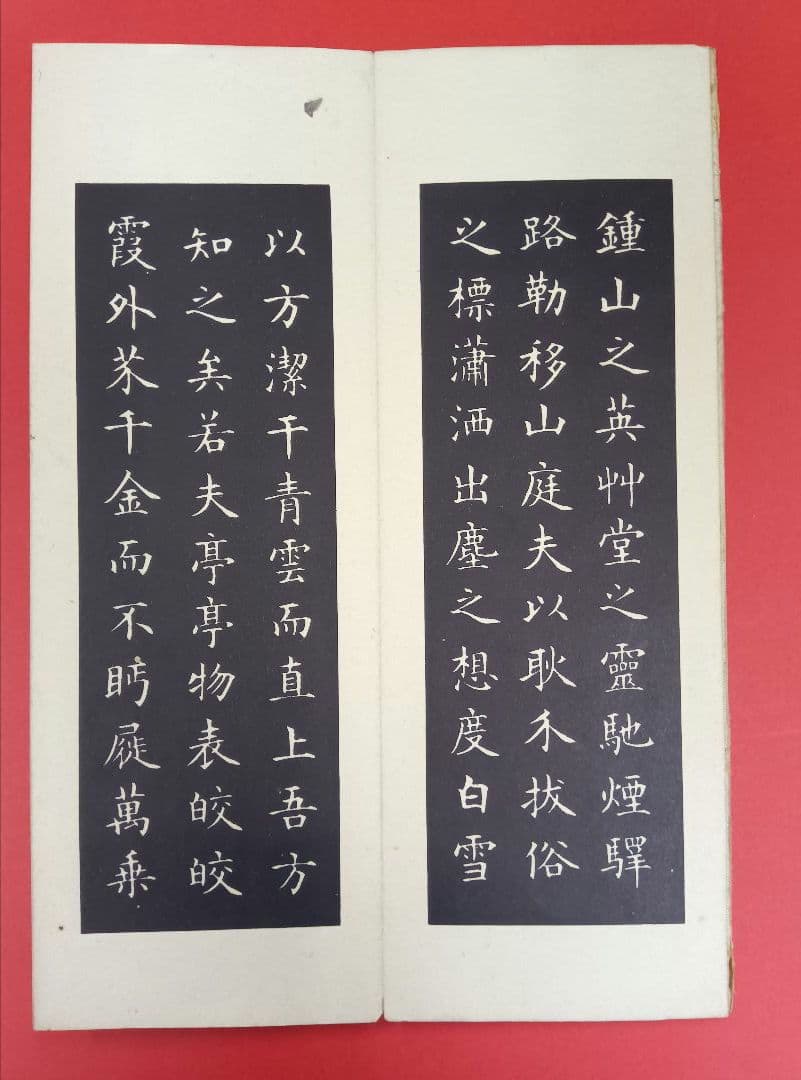 鍾山之英艸堂之靈馳煙驛
路勒移山庭夫以耿介拔俗
之標瀟洒出塵之想度白雪
以方潔干青雲而直上吾方
知之矣若夫亭亭物表皎皎
霞外芥千金而不眄屣萬乗